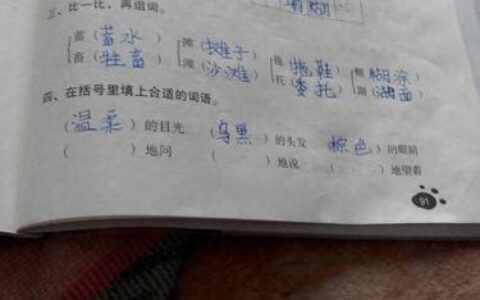 糊
三、比一比，再组词。
蓄（蓄水） 摊（摊子） 拖（拖鞋） 糊（糊涂
畜（牲畜） 滩（沙滩） 托（委托） 湖（湖面
四、在括号里填上合适的词语。
（温柔）的目光 （乌黑）的头发 棕色）的眼睛
（ ）地问 （ ）地说 （ ）地望着
91